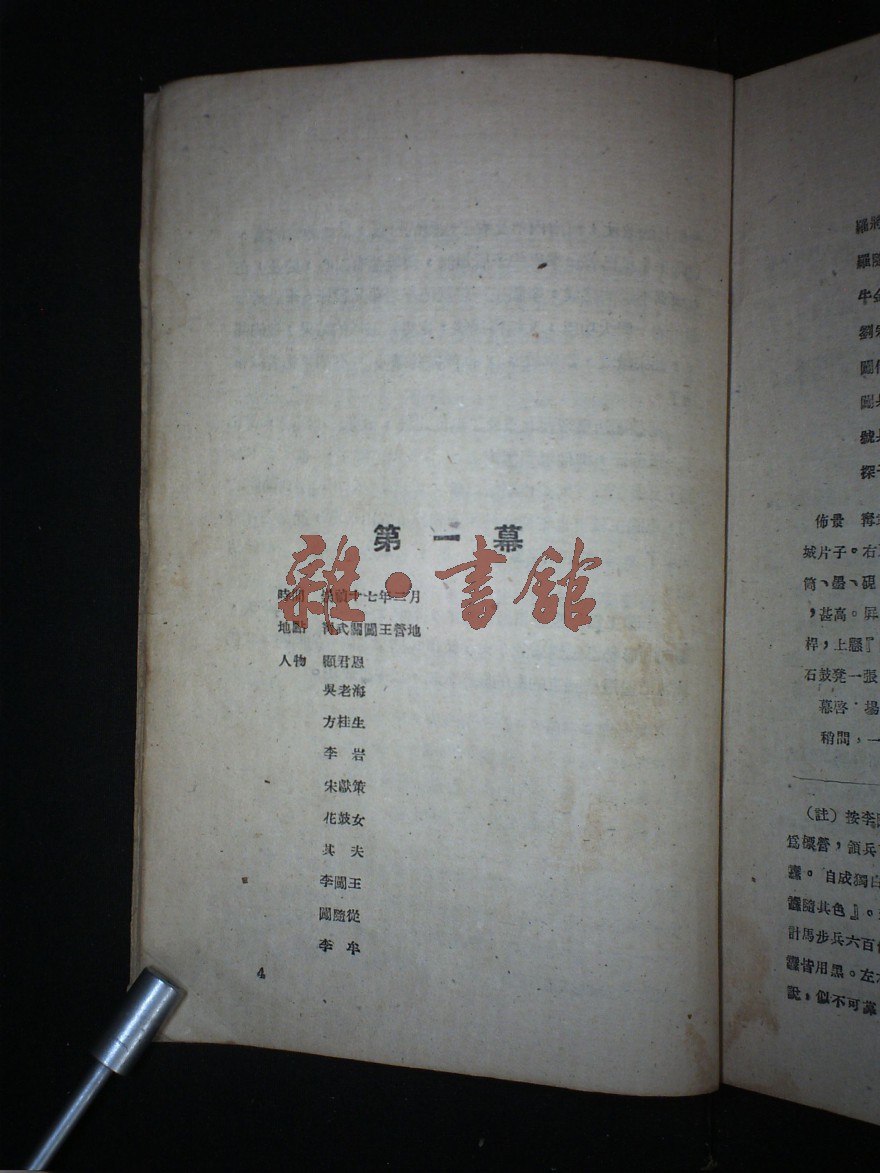 第一幕
雜·書館
時間 崇禎十七年三月
地點 甯武關闖王營地
人物 顧君恩
吳老海
方桂生
李 岩
宋獻策
花鼓女
其 夫
李闖王
闖隨從
李 牟
4
羅
羅隨
牛金
劉宗
闖
闖
號
探子
佈景 甯
城片子。右
筒、墨、硯
,甚高。昇
桿,上懸『
石鼓凳一張
幕啓 場
稍間,一
(註)按李
爲標營,領兵
纛。自成獨白
纛隨其色』。
計馬步兵六百
纛皆用黑。左
說,似不可靠